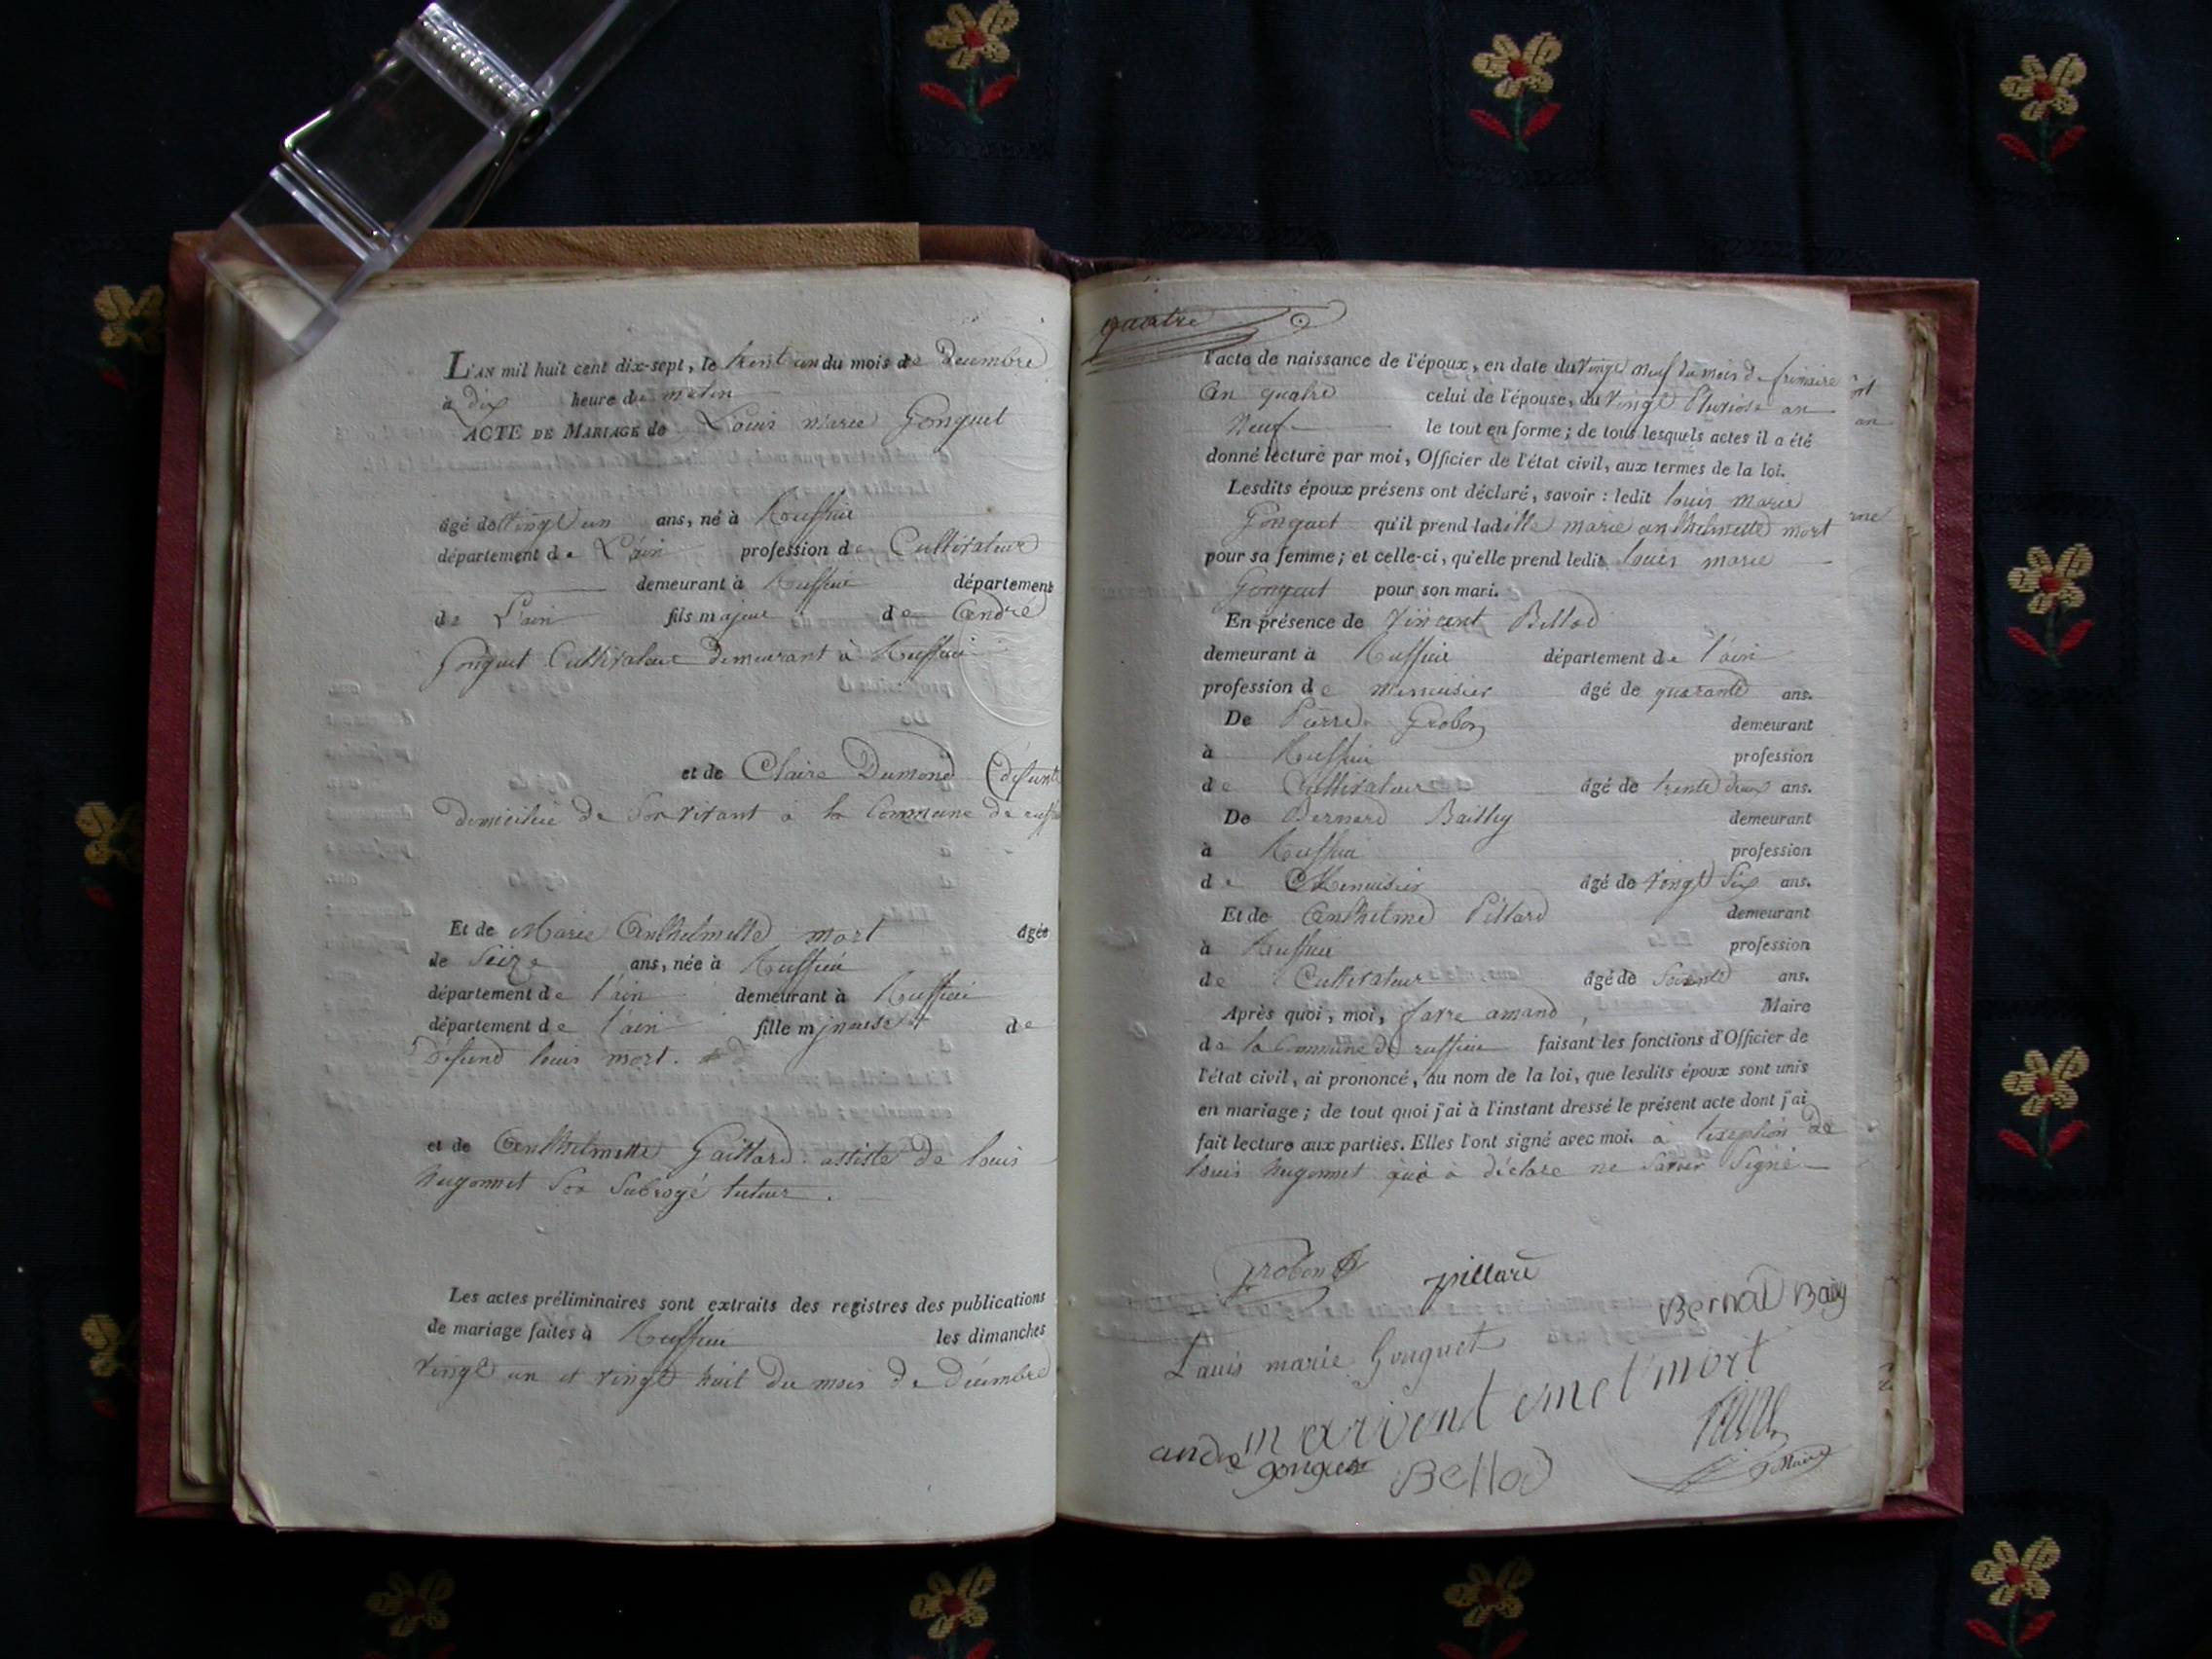 L'AN mil huit cent dix-sept, le trent un du mois de decembre
à dix heure du matin
ACTE DE MARIAGE de Louis marie Gonguet
âgé de vingt un ans, né à Ruffieu
département de L'ain profession de Cultivateur
demeurant à Ruffieu département
de L'ain fils majeur de André
Gonguet Cultivateur demeurant à Ruffieu
et de Claire Dumond (défunte
domiciliée de son vivant à la Commune de ruffieu
Et de Marie Anthelmette mort âgée
de Seize ans, née à Ruffieu
département de l'ain demeurant à Ruffieu
département de l'ain fille mineuse de
Defund louis mort.
et de Anthelmette Gaillard. assisté de louis
hugonnet Son Subrogé tuteur.
Les actes préliminaires sont extraits des registres des publications
de mariage faites à Ruffieu les dimanches
vingt un et vingt huit du mois de décembre
quatre
l'acte de naissance de l'époux, en date du vingt neuf du mois de frimaire
An quatre celui de l'épouse, du vingt Pluviose an
Neuf le tout en forme ; de tous lesquels actes il a été
donné lecture par moi, Officier de l'état civil, aux termes de la loi.
Lesdits époux présens ont déclaré, savoir : ledit louis marie
Gonguet qu'il prend ladille marie anthelmette mort
pour sa femme ; et celle-ci, qu'elle prend ledit louis marie
Gonguet pour son mari.
En présence de Vincent Bellod
demeurant à Ruffieu département de l'ain
profession de menuisier âgé de quarante ans.
De Pierre Grobon demeurant
à Ruffieu profession
de Cultivateur âgé de trente deux ans.
De Bernard Bailly demeurant
à Ruffieu profession
de Menuisier âgé de vingt Six ans.
Et de Anthelme Pillard demeurant
à Ruffieu profession
de Cultivateur âgé de Soixante ans.
Après quoi, moi, favre amand, Maire
de la Commune de ruffieu faisant les fonctions d'Officier de
l'état civil, ai prononcé, au nom de la loi, que lesdits époux sont unis
en mariage ; de tout quoi j'ai à l'instant dressé le présent acte dont j'ai
fait lecture aux parties. Elles l'ont signé avec moi. à l'exeption de
louis hugonnet qui à déclare ne Savoir Signé
Grobon
pillard
Bernad Baily
Louis marie Gonguet
mort
andre gonguet
Bellod
Maire